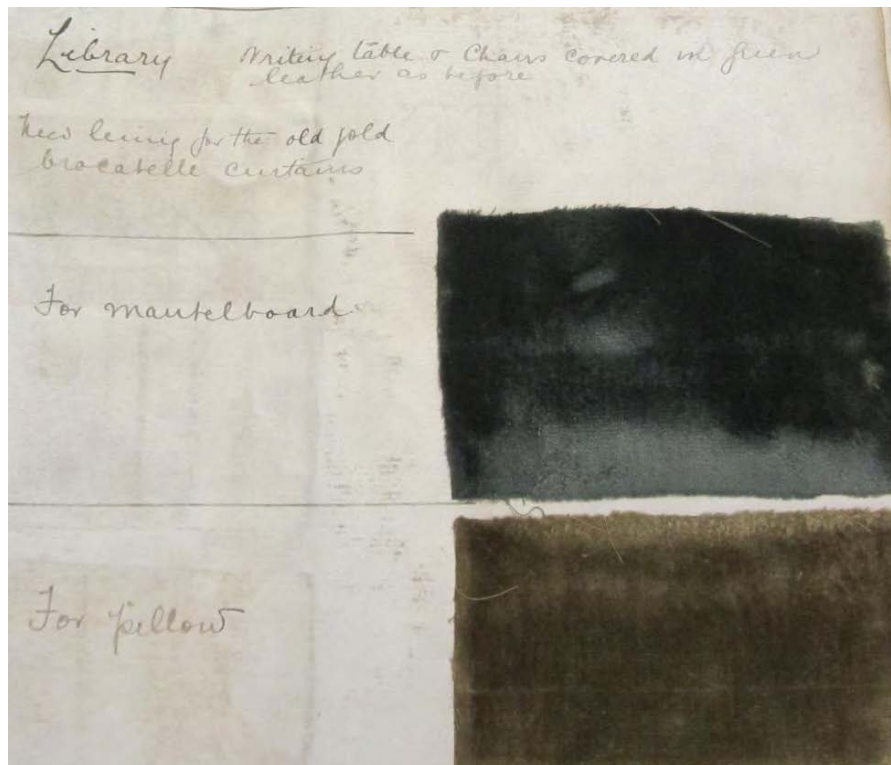 Library Writing table & Chairs covered in green
leather as before
New lining for the old gold
brocatelle curtains
For mantelboard
For pillow